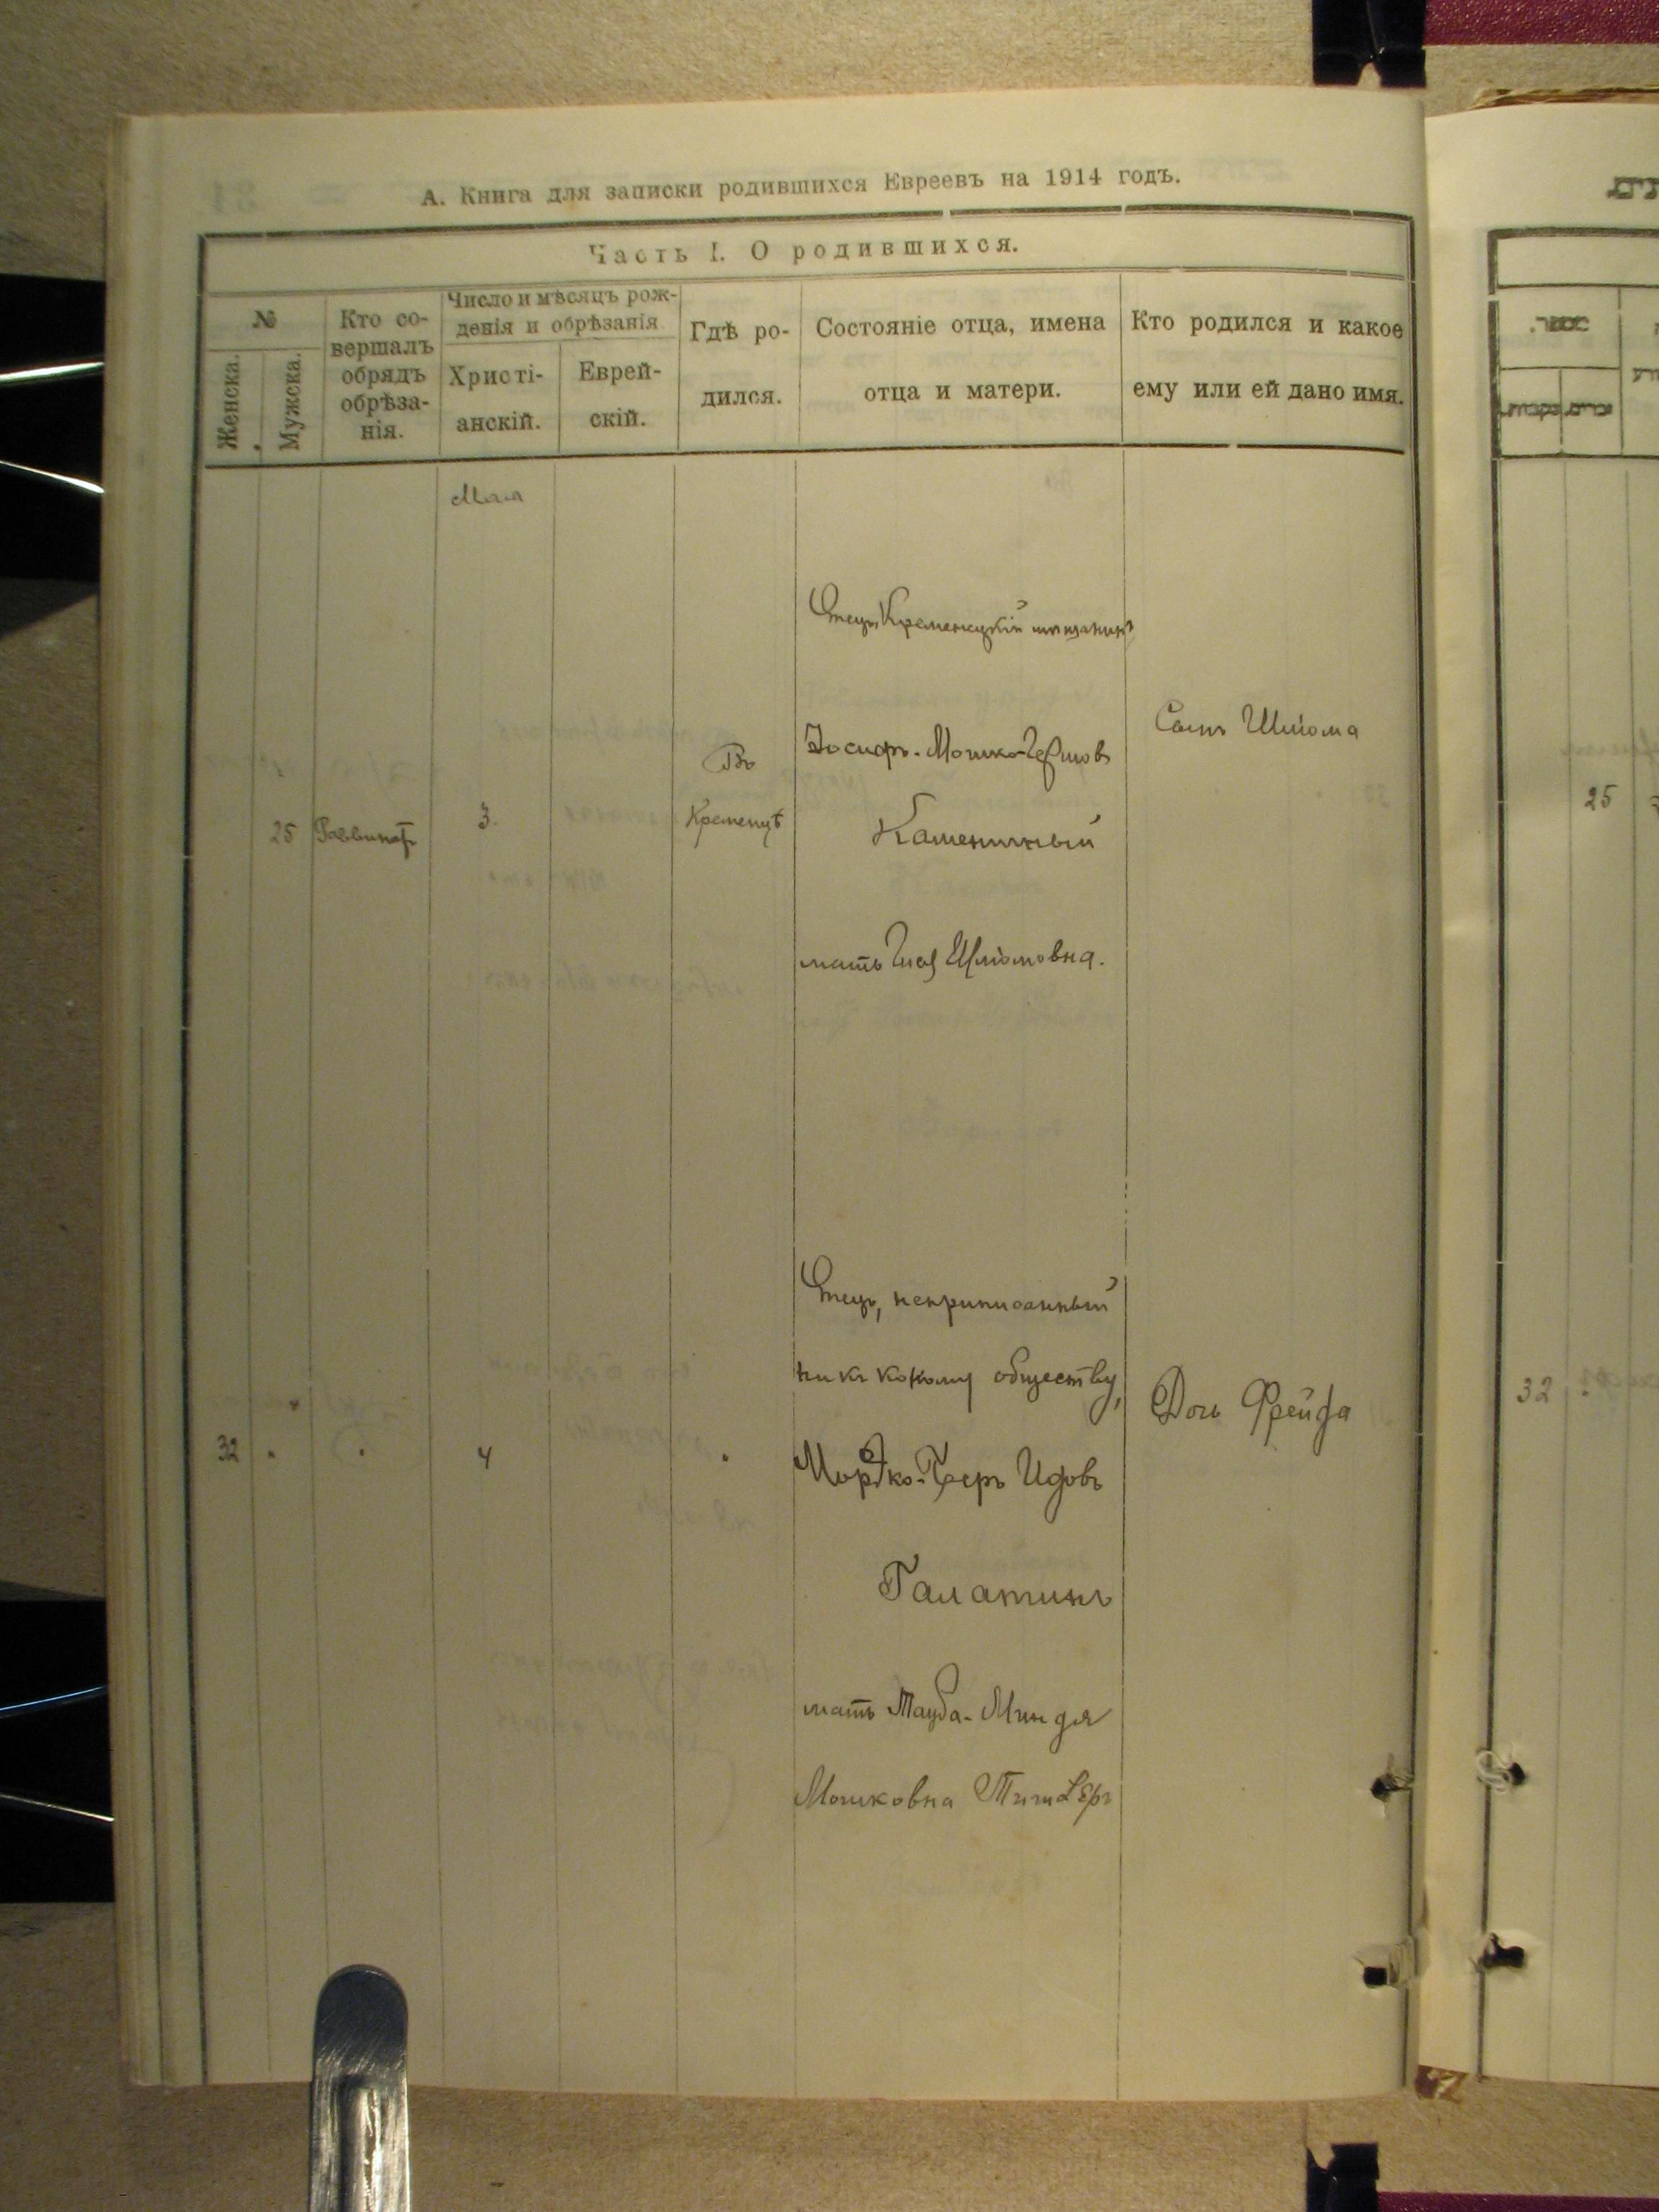 А. Книга для записки родившихся Евреевъ на 1914 годъ.
Часть I. О родившихся.
№
Женска.
Мужска.
Кто со-
вершалъ
обрядъ
обрѣза-
нія.
Число и мѣсяцъ рож-
денія и обрѣзанія
Христі-
анскій.
Еврей-
скій.
Гдѣ ро-
дился.
Состояніе отца, имена
отца и матери.
Кто родился и какое
ему или ей дано имя.
Мая
Отецъ, Кременецкій мѣщанинъ
25
3.
Въ
Кременцѣ
Іосифъ-Мошко Гершовъ
Каменичный
мать Шлiомовна.
Сынъ Шліома
32
4
Отецъ, неприписанный
ни къ какому обществу,
Мордко-Беръ Идовъ
Галатинъ
мать Тауба-Миндля
Мошковна
Дочь Фрейда
25
32